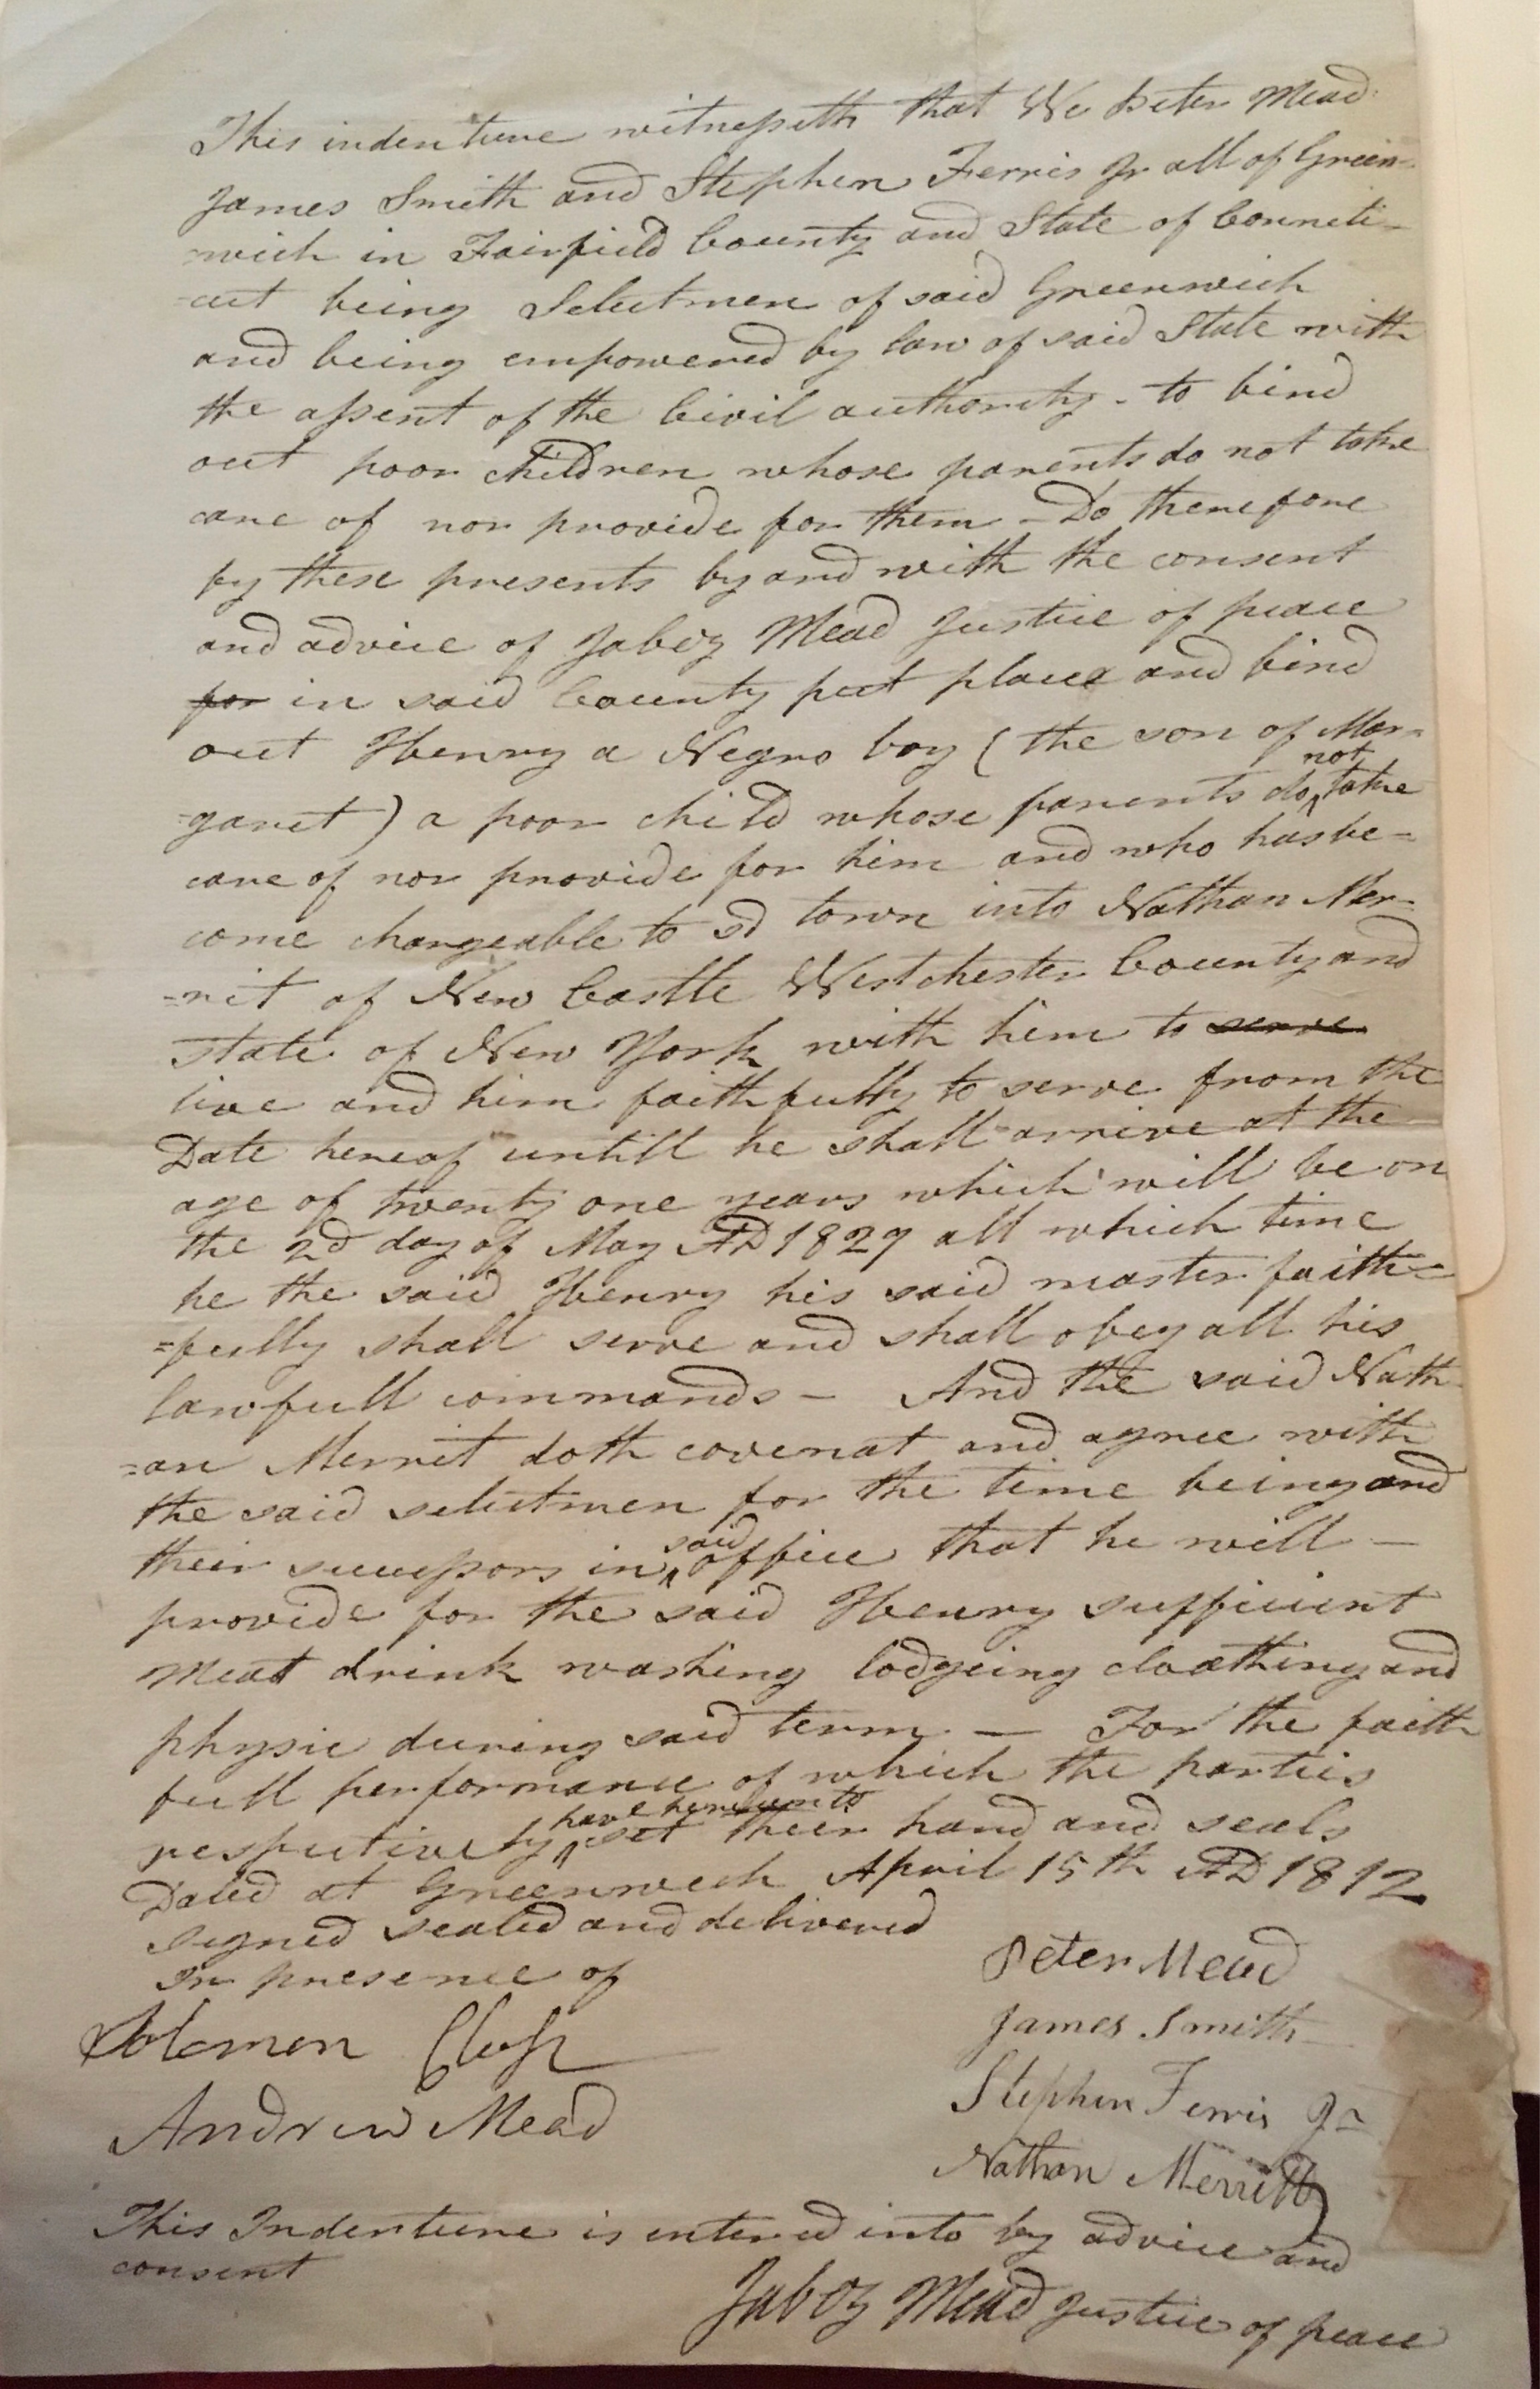 This indenture witnesseth that We Peter Mead
James Smith and Stephen Ferris Jr all of Green-
-wich in Fairfield County and State of Conneti-
-cut being Selectmen of said Greenwich
and being empowered by law of said State with
the assent of the Civil authority - to bind
out poor children whose parents do not take
care of nor provide for them - Do therefore
by these presents by and with the consent
and advice of Jabez Mead Justice of peace
for in said County put place and bind
out Henry a Negro boy ( the son of Mar=
=garet ) a poor child whose parents do not take
care of nor provide for him and who has be=
come chargeable to sd town into Nathan Mer-
=rit of New Castle Westchester County and
State of New York with him to serve
live and him faithfully to serve from the
Date hereof untill he shall arrive at the
age of twenty one years which will be on
the 2d day of May AD 1829 all which time
he the said Henry his said master faith=
=fully shall serve and shall obey all his
lawfull commands - And the said Nath
=an Merrit doth covenat and agree with
the said selectmen for the time being and
their successors in said office that he will -
provide for the said Henry sufficient
Meat drink washing lodgeing cloathing and
physic during said term - For the faith
full performance of which the parties
respectively have hereunto set their hand and seals
Dated at Greenwich April 15th AD 1812
signed sealed and delivered
In presence of
Peter Mead
Solomon Close
James Smith
Andrew Mead
Stephen Ferris Jr
Nathan Merritt
This Indenture is entered into by advice and
consent
Jabez Mead Justice of peace